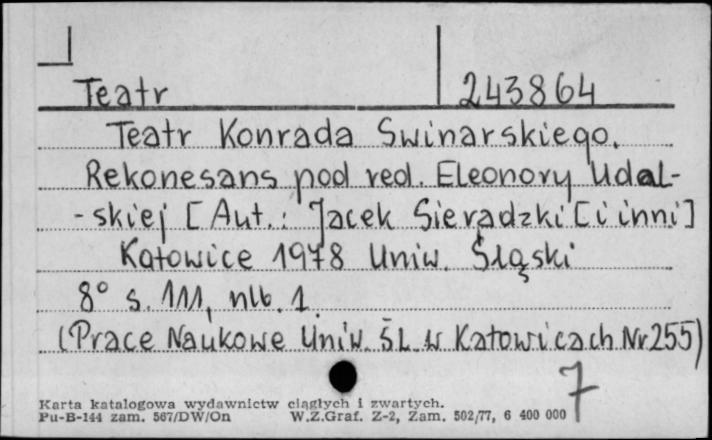 Teatr 243864
Teatr Konrada Swinarskiego.
Rekonesans pod red. Eleonory Udal-
-skiej [Aut.: Jacek Sieradzki [i inni]
Katowice 1978 Uniw. Śląski
8° s. 111, nlb. 1.
(Prace Naukowe Uniw. Śl. w Katowicach Nr 255)
7
Karta katalogowa wydawnictw ciągłych i zwartych.
Pu-B-144 zam. 567/DW/On W.Z.Graf. Z-2, Zam. 502/77, 6 400 000